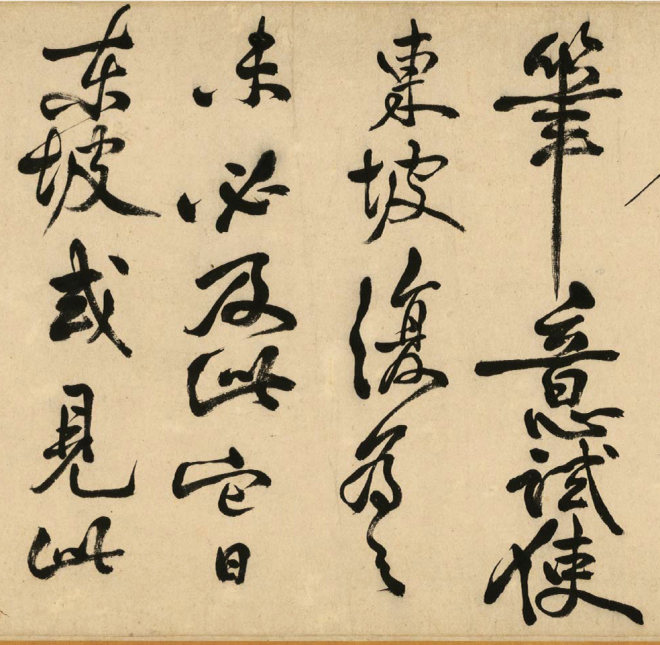 筆意試使
東坡復為之
未必及此它日
东坡或見此